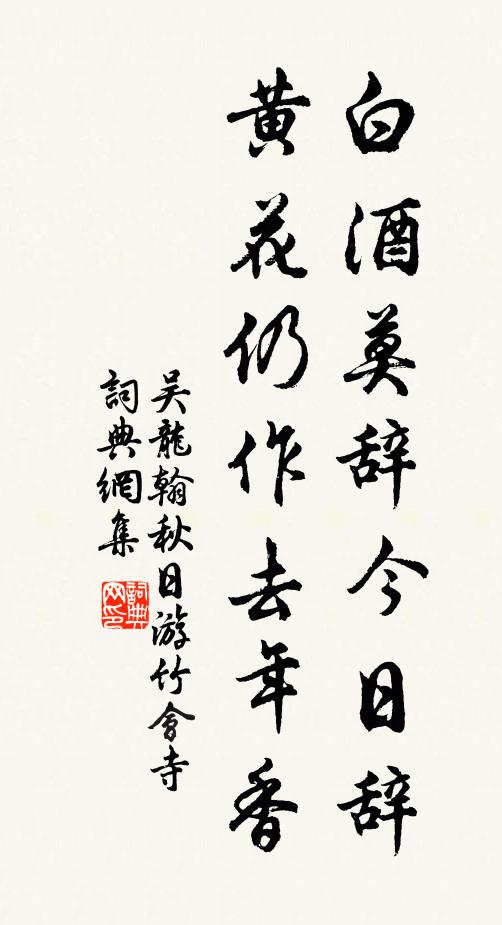 白酒莫辞今日辞
黄花仍作去年香
吴龍翰秋日游竹會寺
詞典網集
詞典网印